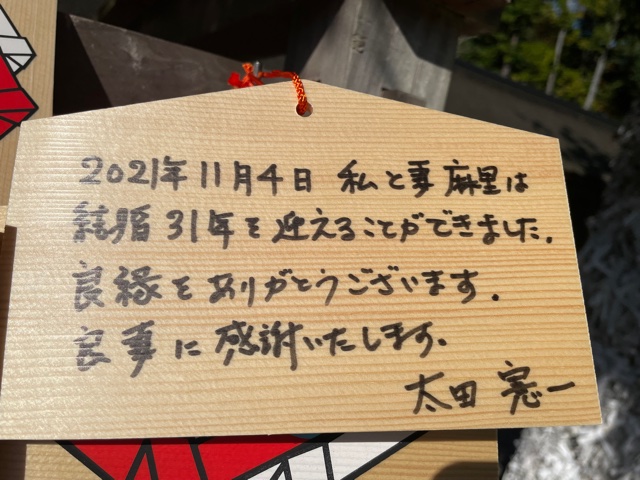 2021年11月4日 私と妻 麻里は
結婚31年を迎えることができました。
良縁をありがとうございます。
良妻に感謝いたします。
太田 憲一